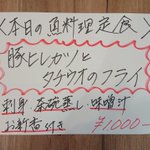 〈本日の魚料理定食〉
豚ヒレカツと
タチウオのフライ
刺身 茶碗蒸し 味噌汁
お新香 付き
¥1000-